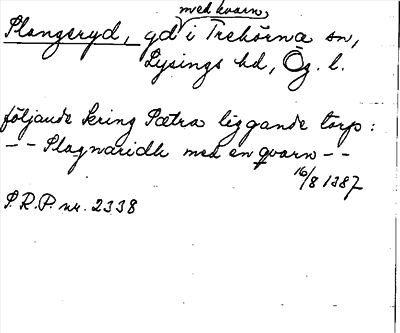 med kvarn,
Slangeryd, gd i Trehörna sn,
Lysings hd, Ög. l.
följande kring Pætra liggande torp:
-- Slagnaridh med en qvarn --
16/8 1387
S.R.P. nr. 2338